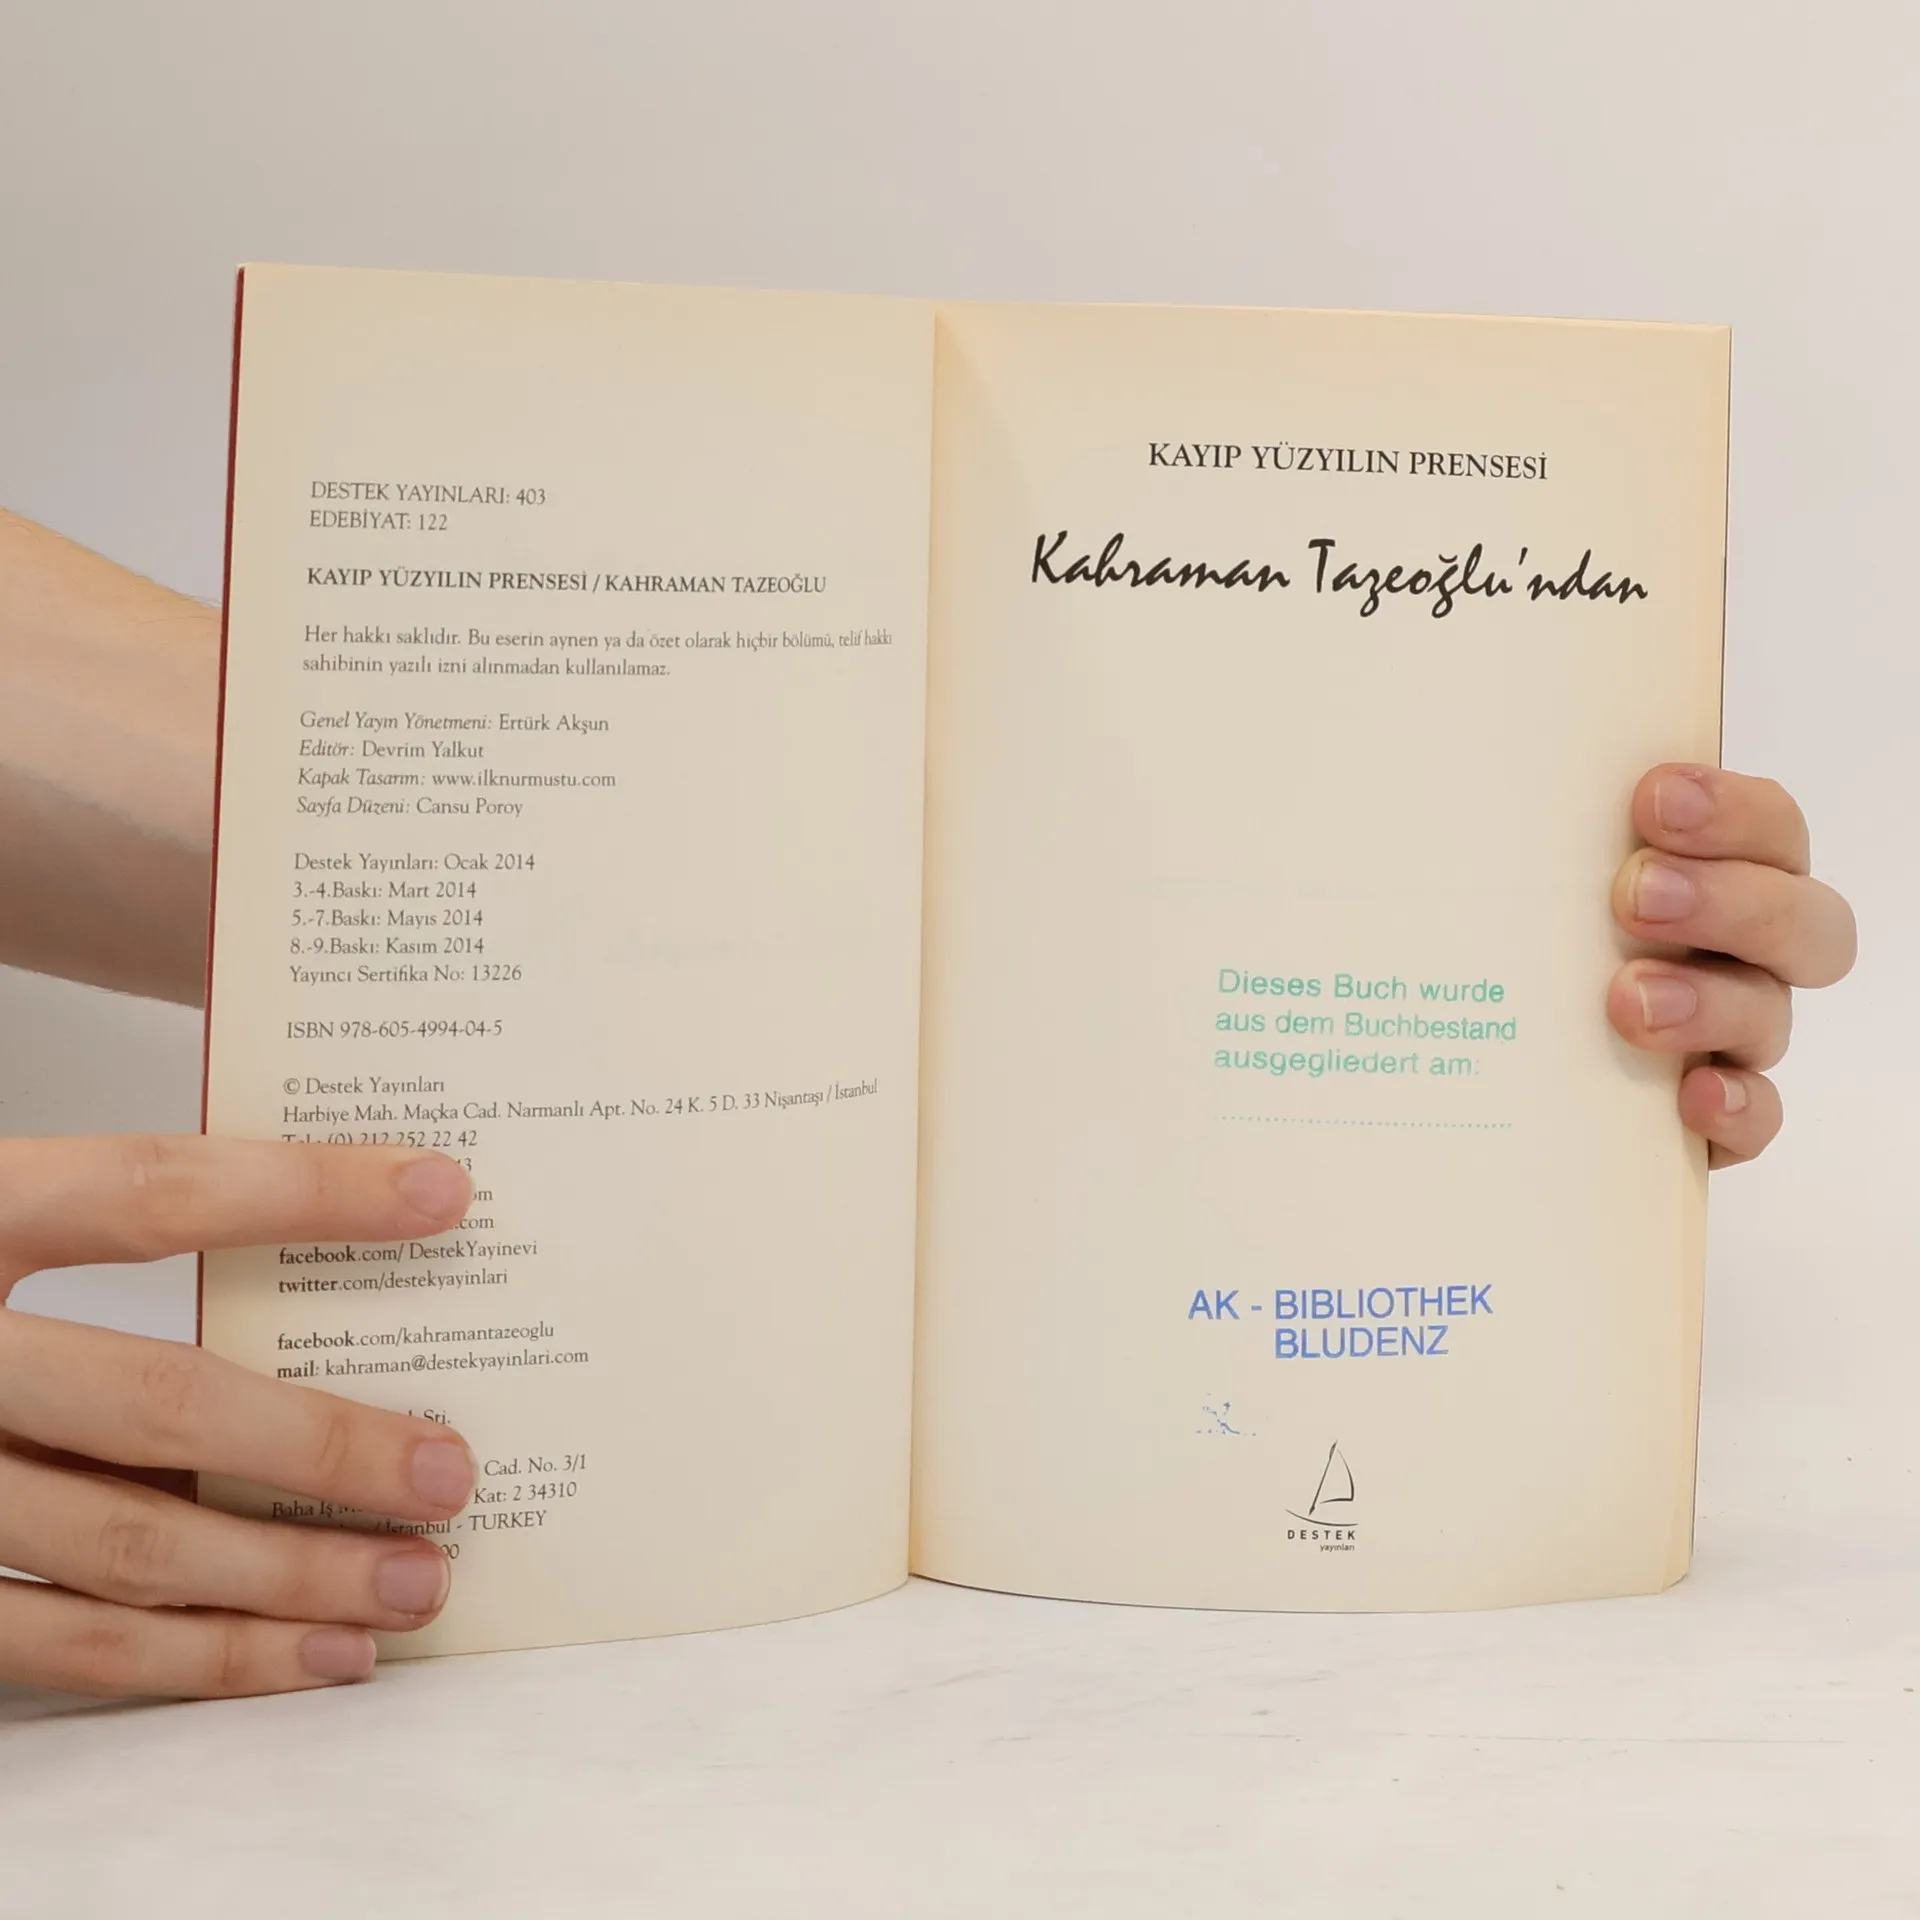 DESTEK YAYINLARI: 403
EDEBİYAT: 122
KAYIP YÜZYILIN PRENSESİ / KAHRAMAN TAZEOĞLU
Her hakkı saklıdır. Bu eserin aynen ya da özet olarak hiçbir bölümü, telif hakkı
sahibinin yazılı izni alınmadan kullanılamaz.
Genel Yayın Yönetmeni: Ertürk Akşun
Editör: Devrim Yalkut
Kapak Tasarım: www.ilknurmustu.com
Sayfa Düzeni: Cansu Poroy
Destek Yayınları: Ocak 2014
3.-4.Baskı: Mart 2014
5.-7.Baskı: Mayıs 2014
8.-9.Baskı: Kasım 2014
Yayıncı Sertifika No: 13226
ISBN 978-605-4994-04-5
© Destek Yayınları
Harbiye Mah. Maçka Cad. Narmanlı Apt. No. 24 K. 5 D. 33 Nişantaşı / İstanbul
(0) 212 252 22 42
facebook.com/ DestekYayinevi
twitter.com/destekyayinlari
facebook.com/kahramantazeoglu
mail: kahraman@destekyayinlari.com
Şti.
Cad. No. 3/1
Baha İş Kat: 2 34310
İstanbul - TURKEY
KAYIP YÜZYILIN PRENSESİ
Kahraman Tazeoğlu'ndan
Dieses Buch wurde
aus dem Buchbestand
ausgegliedert am:
AK - BIBLIOTHEK
BLUDENZ
DESTEK
yayınları